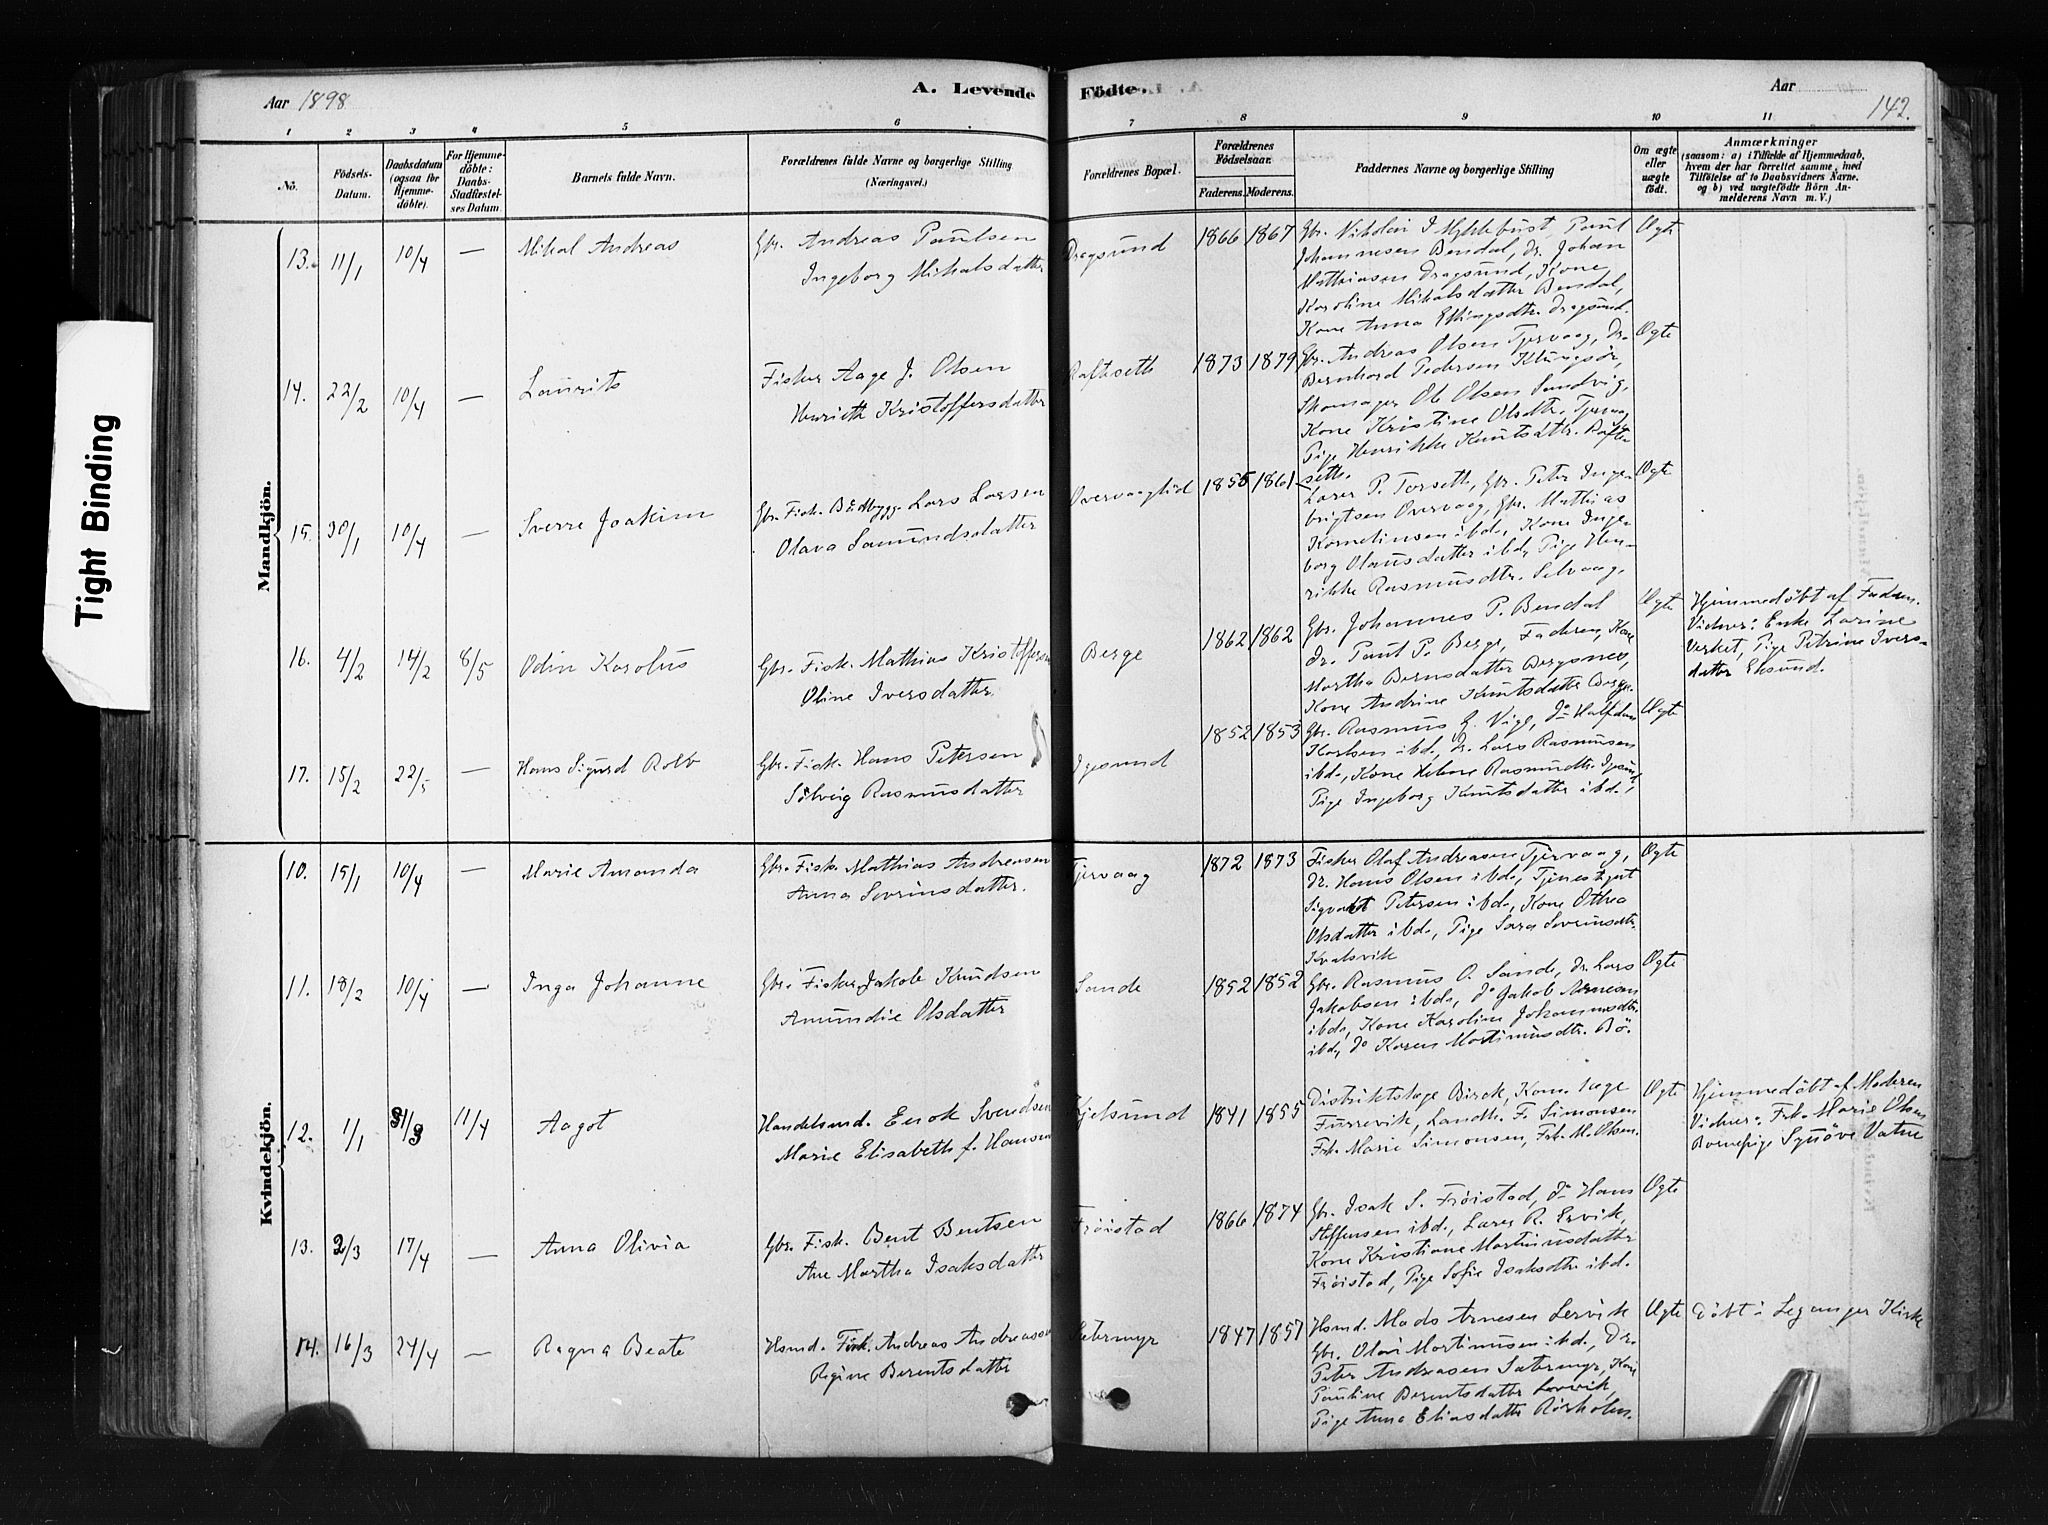 Tight Binding
Aar 1898
A. Levende Födte.
Aar
142.
1 2 3 4 5 6 7 8 9 10 11
No.
Födsels-Datum.
Daabsdatum (ogsaa for Hjemme-döbte).
For Hjemme-döbte: Daabs-Stadfæstel-ses Datum.
Barnets fulde Navn.
Forældrenes fulde Navne og borgerlige Stilling (Næringsvei.)
Forældrenes Bopæl.
Forældrenes Födselsaar.
Faderens. Moderens.
Faddernes Navne og borgerlige Stilling
Om ægte eller uægte födt.
Anmærkninger
(saasom: a) i Tilfælde af Hjemmedaab,
hvem der har forrettet samme, med
Tilföielse af to Daabsvidners Navne,
og b) ved uægtefödte Börn An-
melderens Navn m. V.)
Mandkjön.
13. 11/1 10/4 — Mikal Andreas
Gbr. Andreas Paulsen
Ingeborg Mikalsdatter
Dragsund 1866 1867
Gbr. Nikolai J Myklebust Paul
Johannesen Bendal, Dr. Johan
Mathiasen Dragsund, Kone
Karoline Mikalsdatter Bendal,
Kone Anna Ellingsdtr. Dragsund.
Ægte
14. 22/2 10/4 — Laurits
Fisker Aage J. Olsen
Henriette Kristoffersdatter
Rafteseth 1873 1879
Gbr. Andreas Olsen Tjervaag, Dr.
Bernhard Pedersen Klungsör,
Skomager Ole Olsen Sandvig,
Kone Kristine Olsdtr. Tjervaag
Pige Henrikke Knutsdtr. Rafte-
seth.
Ægte
15. 30/1 10/4 — Sverre Joakim
Gbr. Fisk. Baadbygg. Lars Larsen
Olava Samundsdatter
Overvaaglid 1855 1861
Lærer P. Torseth, Gbr. Peter Inge-
brigtsen Overvaag, Gbr. Mathias
Korneliusen ibd., Kone Inge-
borg Olausdatter ibd, Pige Hen-
rikke Rasmusdtr. Selvaag.
Ægte
16. 4/2 14/2 8/5 Odin Karolus
Gbr. Fisk. Mathias Kristoffersen
Oline Iversdatter
Berge 1862 1862
Gbr. Johannes P. Bendal
Dr. Paul P. Berge, Faderen, Kone
Martha Berntsdatter Bergsnes,
Kone Andrine Knutsdatter Berge.
Ægte
Hjemmedöbt af Faderen.
Vidner: Enke Larine
Verket, Pige Petrine Ivers-
datter Eksund.
17. 15/2 22/5 — Hans Sigurd Rolv
Gbr. Fisk. Hans Petersen
Sölveig Rasmusdatter
Igesund 1852 1853
Gbr. Rasmus G. Vige, do Halfdan
Karlsen ibd., Dr. Lars Rasmusen
ibd., Kone Helene Rasmusdtr. Igesund
Pige Ingeborg Knutsdatter ibd.,
Ægte
Kvindekjön.
10. 15/1 10/4 — Marie Amanda
Gbr. Fisk. Mathias Andreasen
Anna Severinsdatter.
Tjervaag 1872 1873
Fisker Olaf Andreasen Tjervaag,
Dr. Hans Olsen ibd., Tjenestgut
Sigvald Petersen ibd., Kone Othea
Olsdatter ibd., Pige Sara Severinsdtr.
Kvalsvik
Ægte
11. 18/2 10/4 — Inga Johanne
Gbr. Fisker Jakob Knudsen
Amundie Olsdatter
Sande 1852 1852
Gbr. Rasmus O. Sande, Dr. Lars
Jakobsen ibd., do Jakob Arnesen
ibd., Kone Karoline Johannesdtr.
ibd., do Karen Martinusdtr. Bö.
Ægte
12. 1/1 31/3 11/4 Aagot
Handelsmd. Enok Svendsen
Marie Elisabeth f. Hansen
Kjelsund 1841 1855
Distriktslæge Birck, Kom. læge
Furrevik, Landh. F. Simonsen
Frk. Marie Simonsen, Frk. M. Olsen.
Ægte
Hjemmedöbt af Moderen
Vidner: Frk. Marie Olsen
Barnepige Synöve Vatne
13. 2/3 17/4 — Anna Olivia
Gbr. Fisk. Bent Bentsen
Ane Martha Isaksdatter
Fröistad 1866 1874
Gbr. Isak S. Fröistad, do Hans
Steffensen ibd., Lærer R. Ervik,
Kone Kristiane Martinusdatter
Fröistad, Pige Sofie Isaksdtr. ibd.
Ægte
14. 16/3 24/4 — Ragna Beate
Hsmd. Fisk. Andreas Andreasen
Regine Berentsdatter
Sætermyr 1847 1857
Hsmd. Mads Arnesen Lervik
Gbr. Olai Martinusen ibd., Dr.
Peter Andreasen Sætermyr, Kone
Pauline Berentsdatter Lervik,
Pige Anna Eliasdatter Rörholm.
Ægte
Döbt i Leganger Kirke